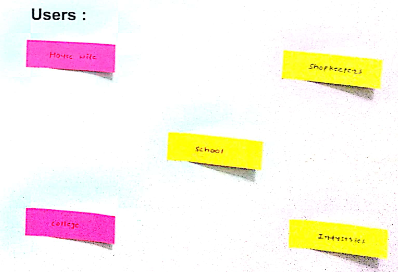 Users :
House wife
Shopkeepers
school
college
Industries